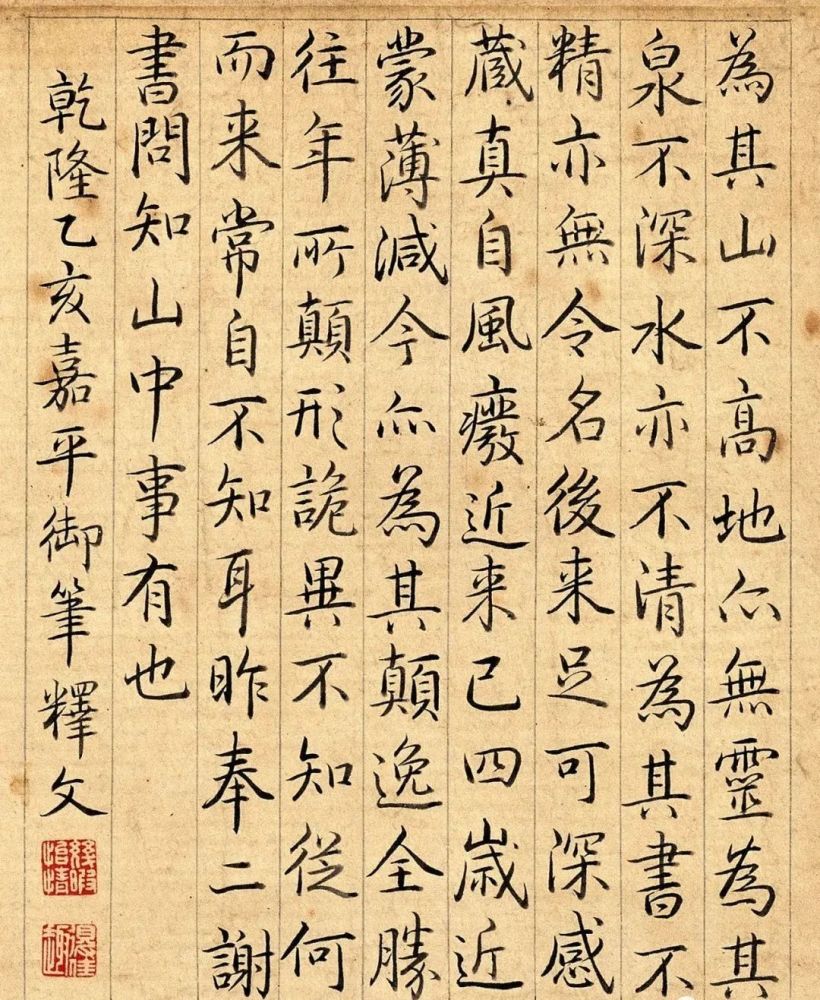 為其山不高地亦無靈為其
泉不深水亦不清為其書不
精亦無令名後来足可深感
蔵真自風癈近来已四歲近
蒙薄減今亦為其顛逸全勝
往年所顛形詭異不知從何
而来常自不知耳昨奉二謝
書問知山中事有也
乾隆乙亥嘉平御筆釋文
幾暇怡情
得佳趣